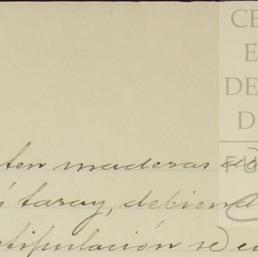 CE
E
DE
D
FU
ten maderas
ó taray, debiend
tipulación se